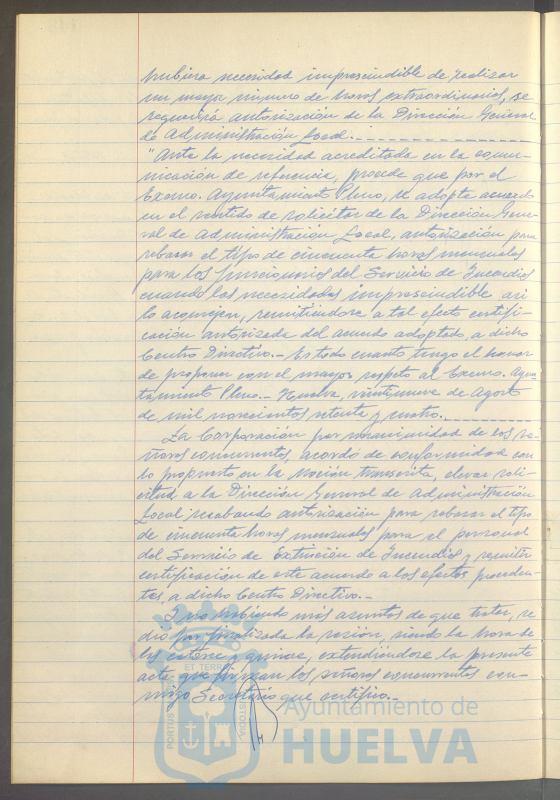 hubiera necesidad imprescindible de realizar
un mayor número de horas extraordinarias, se
requerirá autorización de la Dirección General
de Administración Local.
"Ante la necesidad acreditada en la comu-
nicación de referencia, procede que por el
Excmo. Ayuntamiento Pleno, se adopte acuerdo
en el sentido de solicitar de la Dirección Gene-
ral de Administración Local, autorización para
rebasar el tipo de cincuenta horas mensuales
para los funcionarios del Servicio de Incendios
cuando las necesidades imprescindible así
lo aconsejen, remitiéndose a tal efecto certifi-
cación autorizada del acuerdo adoptado, a dicho
Centro Directivo.- Es todo cuanto tengo el honor
de proponer con el mayor respeto al Excmo. Ayun-
tamiento Pleno.- Huelva, veintinueve de Agosto
de mil novecientos setenta y cuatro.
La Corporación por unanimidad de los se-
ñores concurrentes, acordó de conformidad con
lo propuesto en la Moción transcrita, elevar soli-
citud a la Dirección General de Administración
Local recabando autorización para rebasar el tipo
de cincuenta horas mensuales para el personal
del Servicio de Extinción de Incendios y remitir
certificación de este acuerdo a los efectos proceden-
tes, a dicho Centro Directivo.-
Y no habiendo más asuntos de que tratar, se
dió por finalizada la sesión, siendo la hora de
las catorce, quince, extendiéndose la presente
acta que firman los señores concurrentes con-
migo Secretario que certifico.-
PORTUS
ET TERRAE
CUSTODIA
Ayuntamiento de
HUELVA